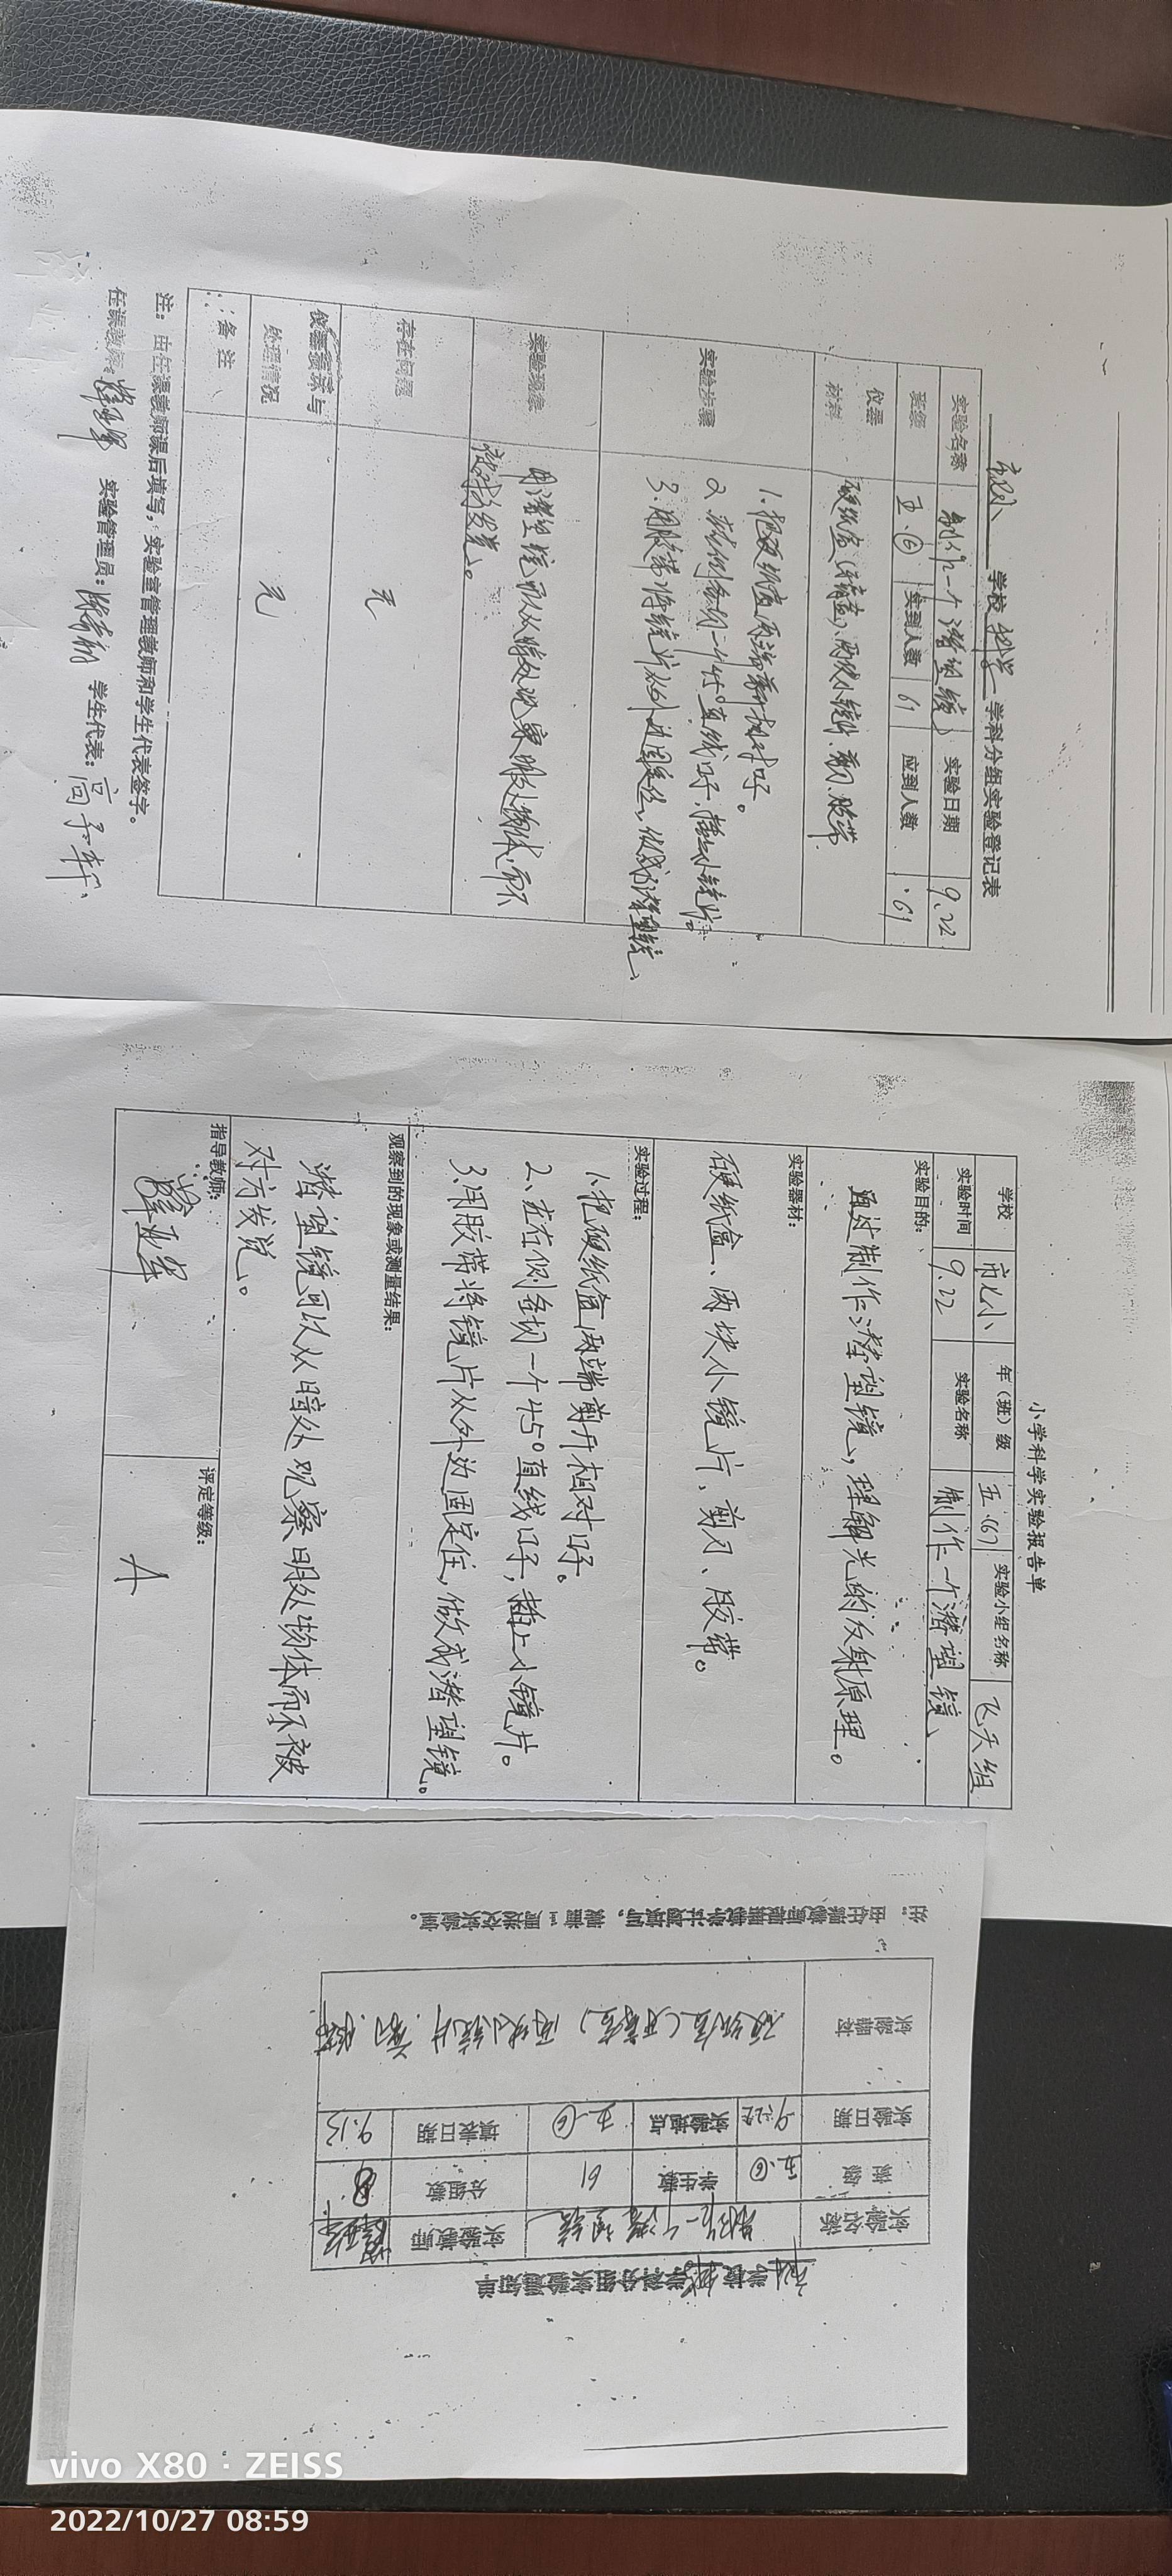 市七小 学校 科学 学科分组实验登记表
实验名称 制作一个潜望镜 实验日期 9.22
班级 五.⑥ 实到人数 61 应到人数 61
仪器材料 硬纸盒(牙膏盒)、两块小镜片、剪刀、胶带
实验步骤
1.把硬纸盒两端剪开相对口子。
2.左右侧各切一个45°直线口子,插上小镜片。
3.用胶带将镜片从外边固定住,做成潜望镜、
实验现象 用潜望镜可以从暗处观察明处物体,而不
被对方发觉。
存在问题 无
仪器损坏与处理情况 无
备注
注:由任课教师课后填写,实验室管理教师和学生代表签字。
任课教师: 实验管理员: 学生代表:高子轩
小学科学实验报告单
学校 市七小 年(班)级 五.(6) 实验小组名称 飞天组
实验时间 9.22 实验名称 制作一个潜望镜、
实验目的:
通过制作潜望镜,理解光的反射原理。
实验器材:
硬纸盒、两块小镜片,剪刀、胶带。
实验过程:
1.把硬纸盒两端剪开相对口子。
2、左右侧各切一个45°直线口子,插上小镜片。
3.用胶带将镜片从外边固定住,做成潜望镜。
观察到的现象或测量结果:
潜望镜可以从暗处观察明处物体而不被
对方发觉。
指导教师: 评定等级: A
学校 科学 学科分组实验通知单
实验名称 制作一个潜望镜 实验教师
班级 五.⑥ 学生数 61 分组数 8
实验日期 9.22 实验地点 五.⑥ 填表日期 9.13
实验器材 硬纸盒(牙膏盒)两块小镜片、剪刀、胶带
注:由任课教师根据教学计划填写,提前1周送交实验室。
vivo X80 · ZEISS
2022/10/27 08:59